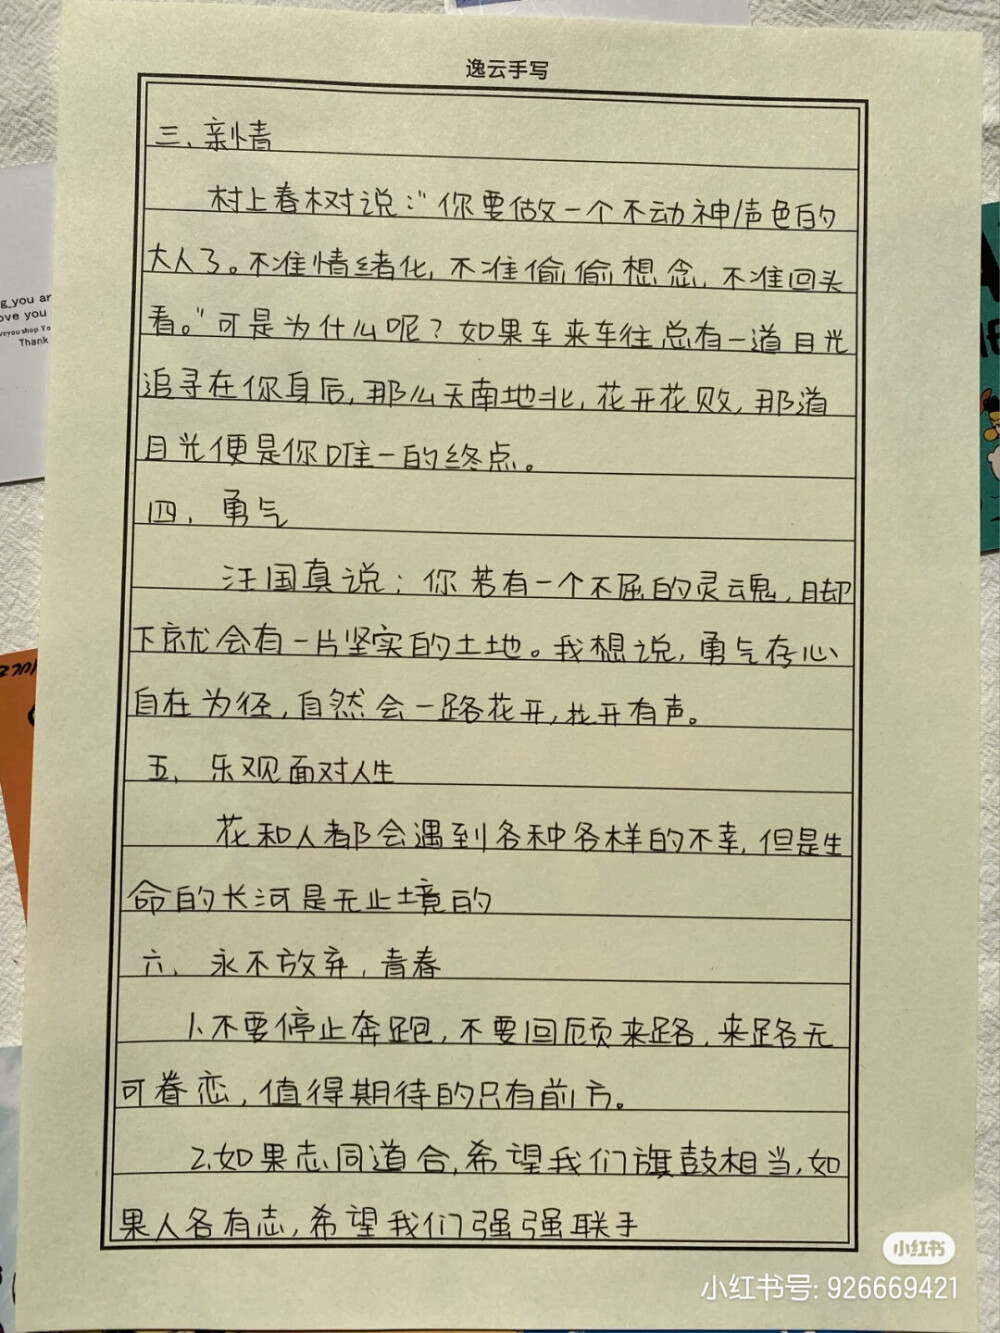 逸云手写
三、亲情
村上春树说:“你要做一个不动神声色的
大人了。不准情绪化,不准偷偷想念,不准回头
看。”可是为什么呢?如果车来车往总有一道目光
追寻在你身后,那么天南地北,花开花败,那道
目光便是你唯一的终点。
四、勇气
汪国真说:你若有一个不屈的灵魂,脚
下就会有一片坚实的土地。我想说,勇气存心
自在为径,自然会一路花开,花开有声。
五、乐观面对人生
花和人都会遇到各种各样的不幸,但是生
命的长河是无止境的
六、永不放弃,青春
1.不要停止奔跑,不要回顾来路,来路无
可眷恋,值得期待的只有前方。
2.如果志同道合,希望我们旗鼓相当,如
果人各有志,希望我们强强联手
g_you ar
ove you
Thank
小红书
小红书号: 926669421